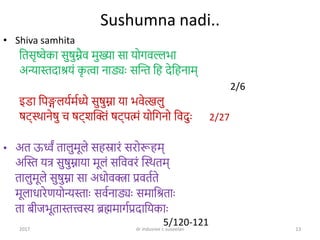 Sushumna nadi..
• Shiva samhita
तिसृष्वेका सुषुम्नैव मुख्या सा योगवल्लभा
अन्यास्तदाश्रयं कृत्वा नाड्यः सन्ति हि देहिनाम्
2/6
इडा पिङ्गलयर्मर्ध्ये सुषुम्ना या भवेत्खलु
षट्स्थानेषु च षट्शक्तिं षट्पद्मं योगिनो विदुः 2/27
• अत ऊर्ध्वं तालुमूले सहस्रारं सरोरूहम्
अस्ति यत्र सुषुम्नाया मूलं सविवरं स्थितम्
तालुमूले सुषुम्ना सा अधोवक्त्रा प्रवर्तते
मूलाधारेणयोन्यस्ताः सर्वनाड्यः समाश्रिताः
ता बीजभूतास्तत्त्वस्य ब्रह्ममार्गप्रदायिकाः
5/120-121
2017 dr induveer s suseelan 13